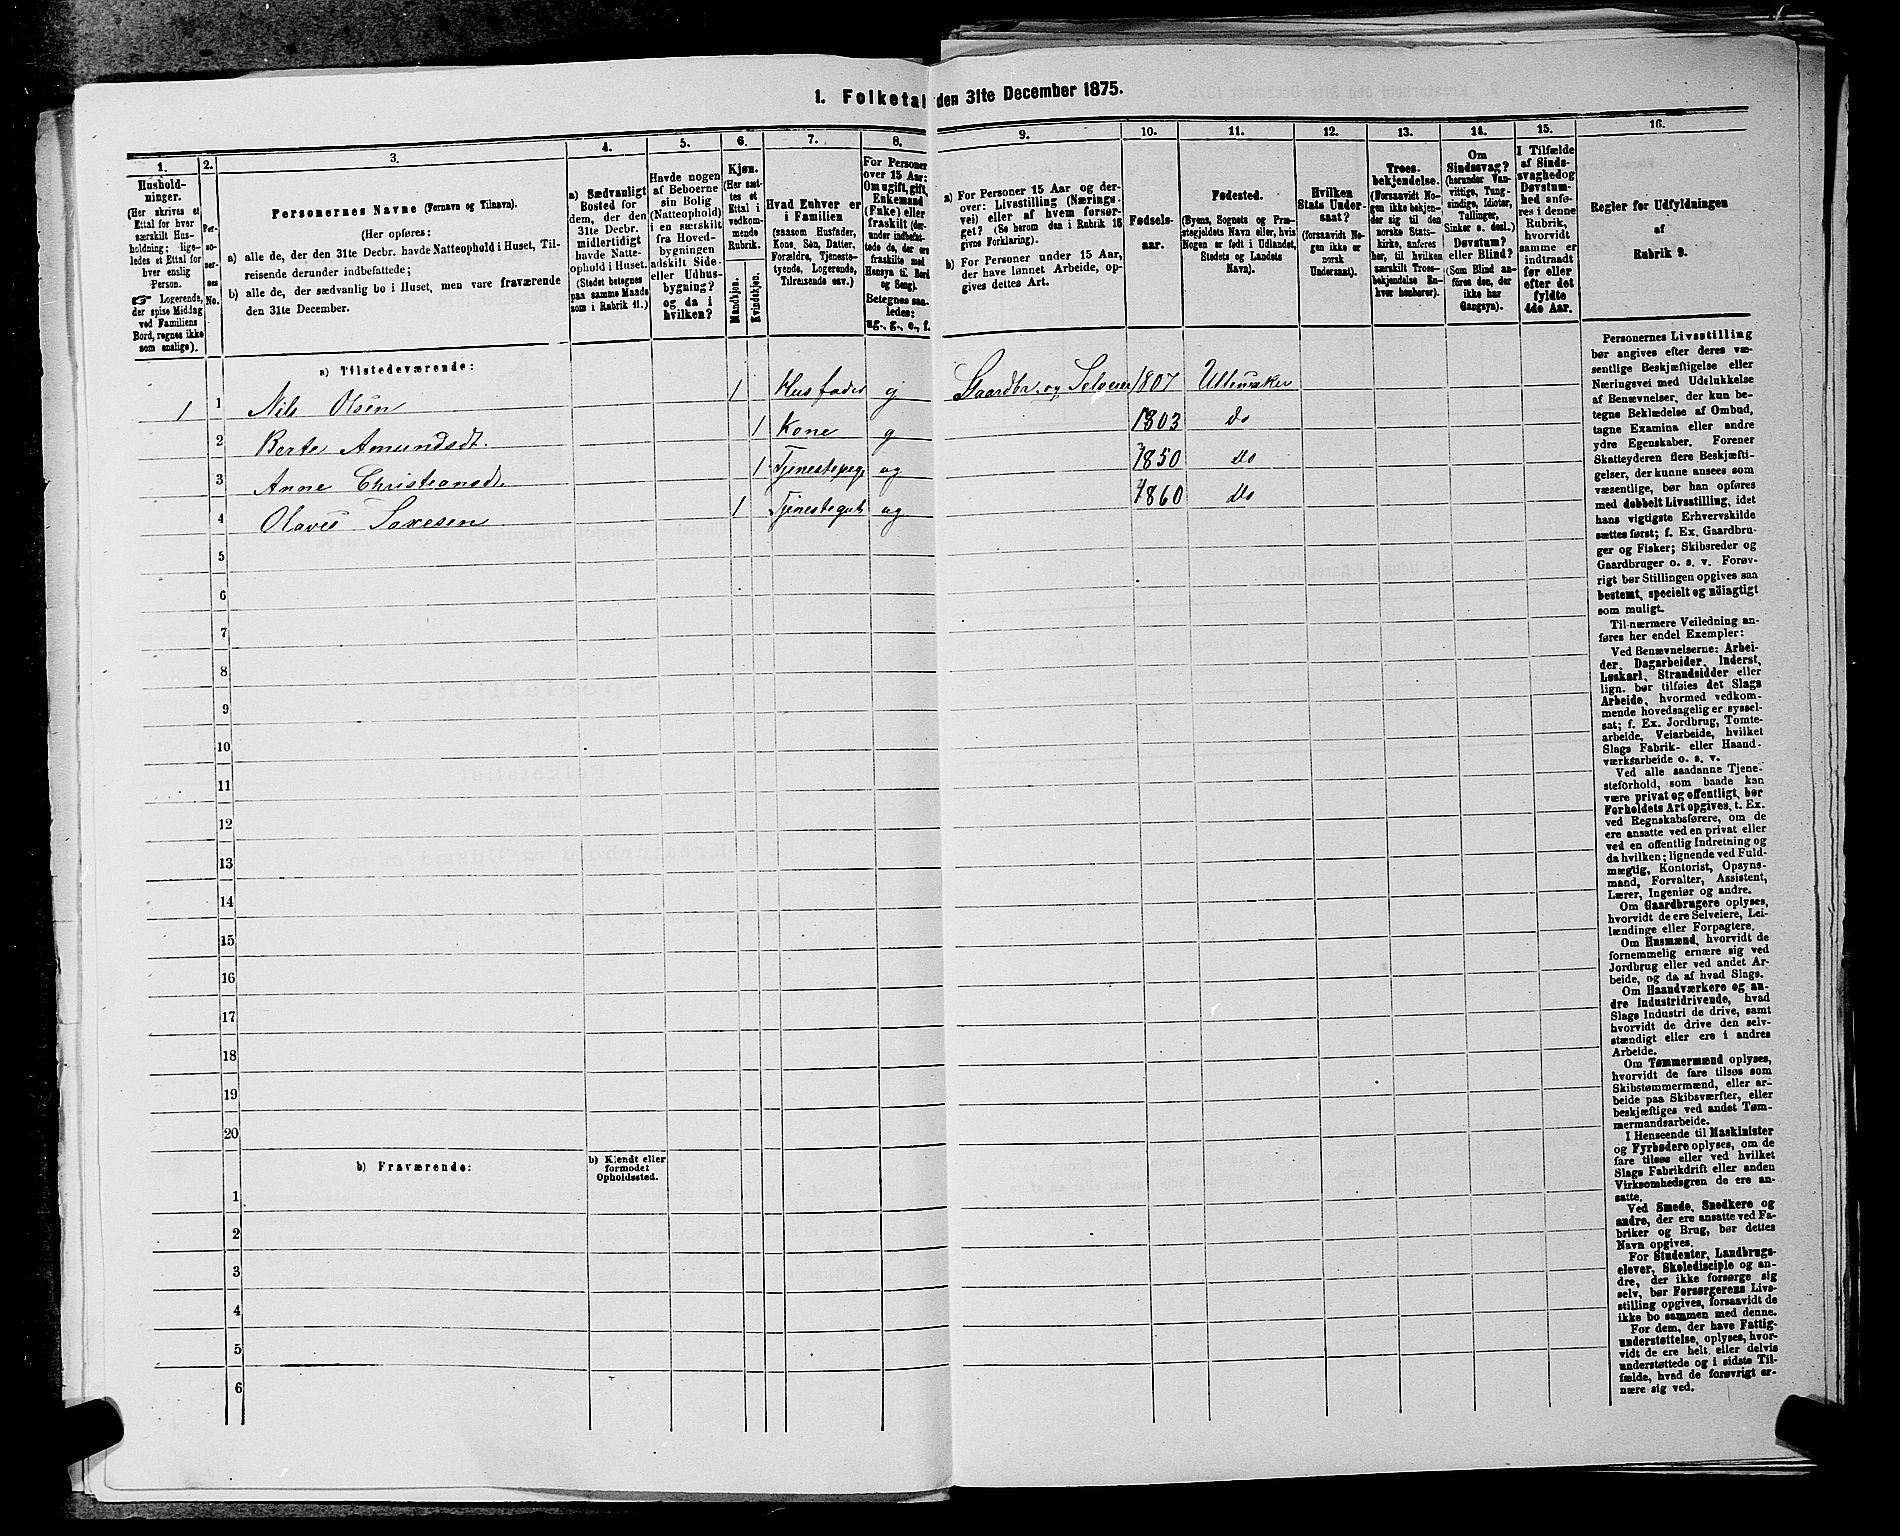 1. Folketal den 31te December 1875.
1.
2.
3.
4.
5.
6.
7.
8.
9.
10.
11.
12.
13.
14.
15.
16.
Hushold-
ninger.
(Her skrives et
Ettal for hver
særskilt Hus-
holdning; lige-
ledes et Ettal for
hver enslig
Person.
☞ Logerende,
der spise Middag
ved Familiens
Bord, regnes ikke
som enslige).
Per-
so-
ner-
nes
No.
Personernes Navne (Fornavn og Tilnavn).
(Her opføres:
a) alle de, der den 31te Decbr. havde Natteophold i Huset, Til-
reisende derunder indbefattede;
b) alle de, der sædvanlig bo i Huset, men vare fraværende
den 31te December.
a) Sædvanligt
Bosted for
dem, der den
31te Decbr.
midlertidigt
havde Natte-
ophold i Huset.
(Stedet betegnes
paa samme Maade
som i Rubrik 11.)
Havde nogen
af Beboerne
sin Bolig
(Natteophold)
i en særskilt
fra Hoved-
bygningen
adskilt Side-
eller Udhus-
bygning?
og da i
hvilken?
Kjøn.
(Her sæt-
tes et
Ettal i
vedkom-
mende
Rubrik.
Mandkjøn.
Kvindekjøn.
Hvad Enhver er
i Familien
(saasom Husfader,
Kone, Søn, Datter,
Forældre, Tjeneste-
tyende, Logerende,
Tilreisende osv.)
For Personer
over 15 Aar:
Om ugift, gift,
Enkemand
(Enke) eller
fraskilt (der-
under indbefat-
tede de, der ere
fraskilte med
Hensyn til Bord
og Seng).
Betegnes saa-
ledes:
ug., g., e., f.
a) For Personer 15 Aar og der-
over: Livsstilling (Nærings-
vei) eller af hvem forsør-
get? (Se herom den i Rubrik 16
givne Forklaring).
b) For Personer under 15 Aar,
der have lønnet Arbeide, op-
gives dettes Art.
Fødsels-
aar.
Fødested.
(Byens, Sognets og Præ-
stegjeldets Navn eller, hvis
Nogen er født i Udlandet,
Stedets og Landets
Navn).
Hvilken
Stats Under-
saat?
(forsaavidt No-
gen ikke er
norsk
Undersaat).
Troes-
bekjendelse.
(Forsaavidt No-
gen ikke bekjen-
der sig til den
norske Stats-
kirke, anføres
her, til hvilken
særskilt Troes-
bekjendelse En-
hver henhører).
Om
Sindssvag?
(herunder Van-
vittige, Tung-
sindige, Idioter,
Tullinger,
Sinker o. desl.)
Døvstum?
eller Blind?
(Som Blind an-
føres den, der
ikke har
Gangsyn).
I Tilfælde
af Sinds-
svaghed og
Døvstum-
hed anfø-
res i denne
Rubrik,
hvorvidt
samme er
indtraadt
før eller
efter det
fyldte
4de Aar.
Regler for Udfyldningen
af
Rubrik 9.
a) Tilstedeværende:
1 1 Nils Olsen 1 Husfader g Gaardbr. og Selveier 1807 Ullensaker
2 Berte Amundsdt. 1 Kone g 1803 do
3 Anne Christiansdt. 1 Tjenestepige ug 1850 do
4 Olaves Saxesen 1 Tjenestegut ug 1860 do
5
6
7
8
9
10
11
12
13
14
15
16
17
18
19
20
b) Fraværende:
b) Kjendt eller
formodet
Opholdssted.
1
2
3
4
5
6
Personernes Livsstilling
bør angives efter deres væ-
sentlige Beskjæftigelse eller
Næringsvei med Udelukkelse
af Benævnelser, der kun be-
tegne Beklædelse af Ombud,
tagne Examina eller andre
ydre Egenskaber. Forener
Skatteyderen flere Beskjæfti-
gelser, der kunne ansees som
væsentlige, bør han opføres
med dobbelt Livsstilling, idet
hans vigtigste Erhvervskilde
sættes først; f. Ex. Gaardbru-
ger og Fisker; Skibsreder og
Gaardbruger o. s. v. Forøv-
rigt bør Stillingen opgives saa
bestemt, specielt og nøiagtigt
som muligt.
Til nærmere Veiledning an-
føres her endel Exempler:
Ved Benævnelserne: Arbei-
der, Dagarbeider, Inderst,
Løskarl, Strandsidder eller
lign. bør tilføies det Slags
Arbeide, hvormed vedkom-
mende hovedsagelig er syssel-
sat; f. Ex. Jordbrug, Tomte-
arbeide, Veiarbeide, hvilket
Slags Fabrik- eller Haand-
værksarbeide o. s. v.
Ved alle saadanne Tjene-
steforhold, som baade kan
være privat og offentligt, bør
Forholdets Art opgives, t. Ex.
ved Regnskabsførere, om de
ere ansatte ved en privat eller
ved en offentlig Indretning og
da hvilken; lignende ved Fuld-
mægtig, Kontorist, Opsyns-
mand, Forvalter, Assistent,
Lærer, Ingeniør og andre.
Om Gaardbrugere oplyses,
hvorvidt de ere Selveiere, Lei-
lændinge eller Forpagtere.
Om Husmænd, hvorvidt de
fornemmelig ernære sig ved
Jordbrug eller ved andet Ar-
beide, og da af hvad Slags.
Om Haandværkere og an-
dre Industridrivende, hvad
Slags Industri de drive, samt
hvorvidt de drive den selv-
stændigt eller ere i andres
Arbeide.
Om Tømmermænd oplyses,
hvorvidt de fare tilsøs som
Skibstømmermænd, eller ar-
beide paa Skibsværfter, eller
beskjæftiges ved andet Tøm-
mermandsarbeide.
I Henseende til Maskinister
og Fyrbødere oplyses, om de
fare tilsøs eller ved hvilket
Slags Fabrikdrift eller anden
Virksomhedsgren de ere an-
satte.
Ved Smede, Snedkere og
andre, der ere ansatte ved Fa-
briker og Brug, bør dettes
Navn opgives.
For Studenter, Landbrugs-
elever, Skoledisciple og an-
dre, der ikke forsørge sig
selv, bør Forsørgerens Livs-
stilling opgives, forsaavidt de
ikke bo sammen med denne.
For dem, der have Fattig-
understøttelse, oplyses, hvor-
vidt de ere helt eller delvis
understøttede og i sidste Til-
fælde, hvad de forøvrigt er-
nære sig ved.